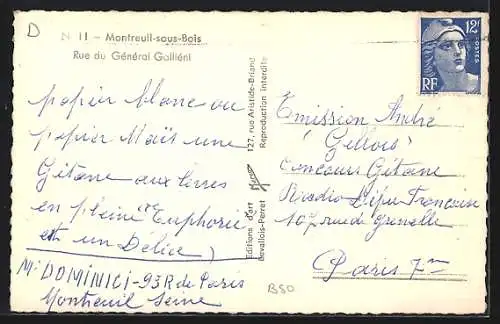 D
N° 11 – Montreuil-sous-Bois
Rue du Général Galliéni
12F
POSTES
RF
papier blanc ou
papier Maïs une
Gitane aux lèvres
en pleine Euphorie
est un Délice
Mr DOMINICI - 93 R de Paris
Montreuil Seine
Editions d'art
Levallois-Perret
127, rue Aristide-Briand
Reproduction interdite
Emission André
Gillois
Concours Gitane
Radio Difus Française
107 rue de Grenelle
Paris 7me
B50